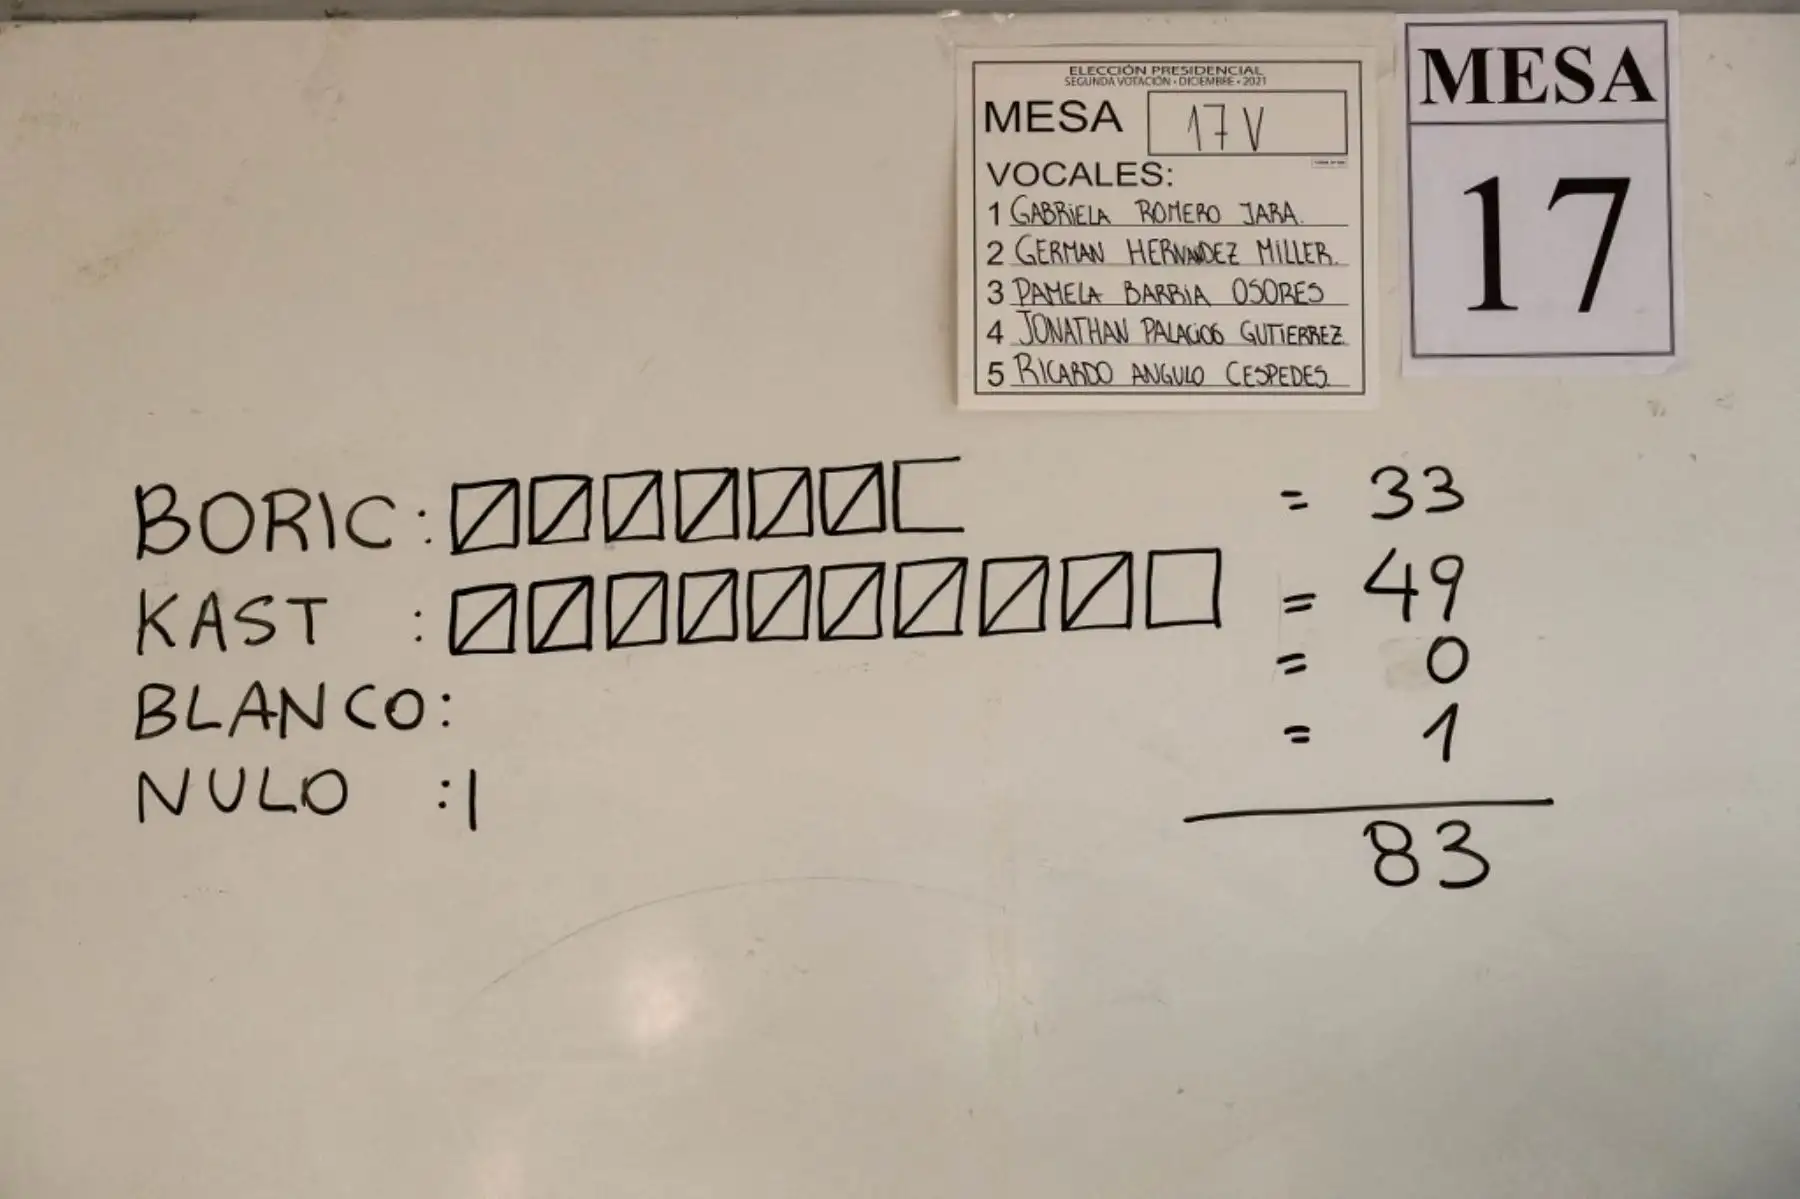 ELECCIÓN PRESIDENCIAL
SEGUNDA VOTACIÓN • DICIEMBRE • 2021
MESA 17 V
VOCALES:
1 GABRIELA ROMERO JARA.
2 GERMAN HERNANDEZ MILLER.
3 PAMELA BARRIA OSORES
4 JONATHAN PALACIOS GUTIERREZ
5 RICARDO ANGULO CESPEDES.
MESA
17
BORIC: = 33
KAST : = 49
BLANCO: = 0
NULO :| = 1
83